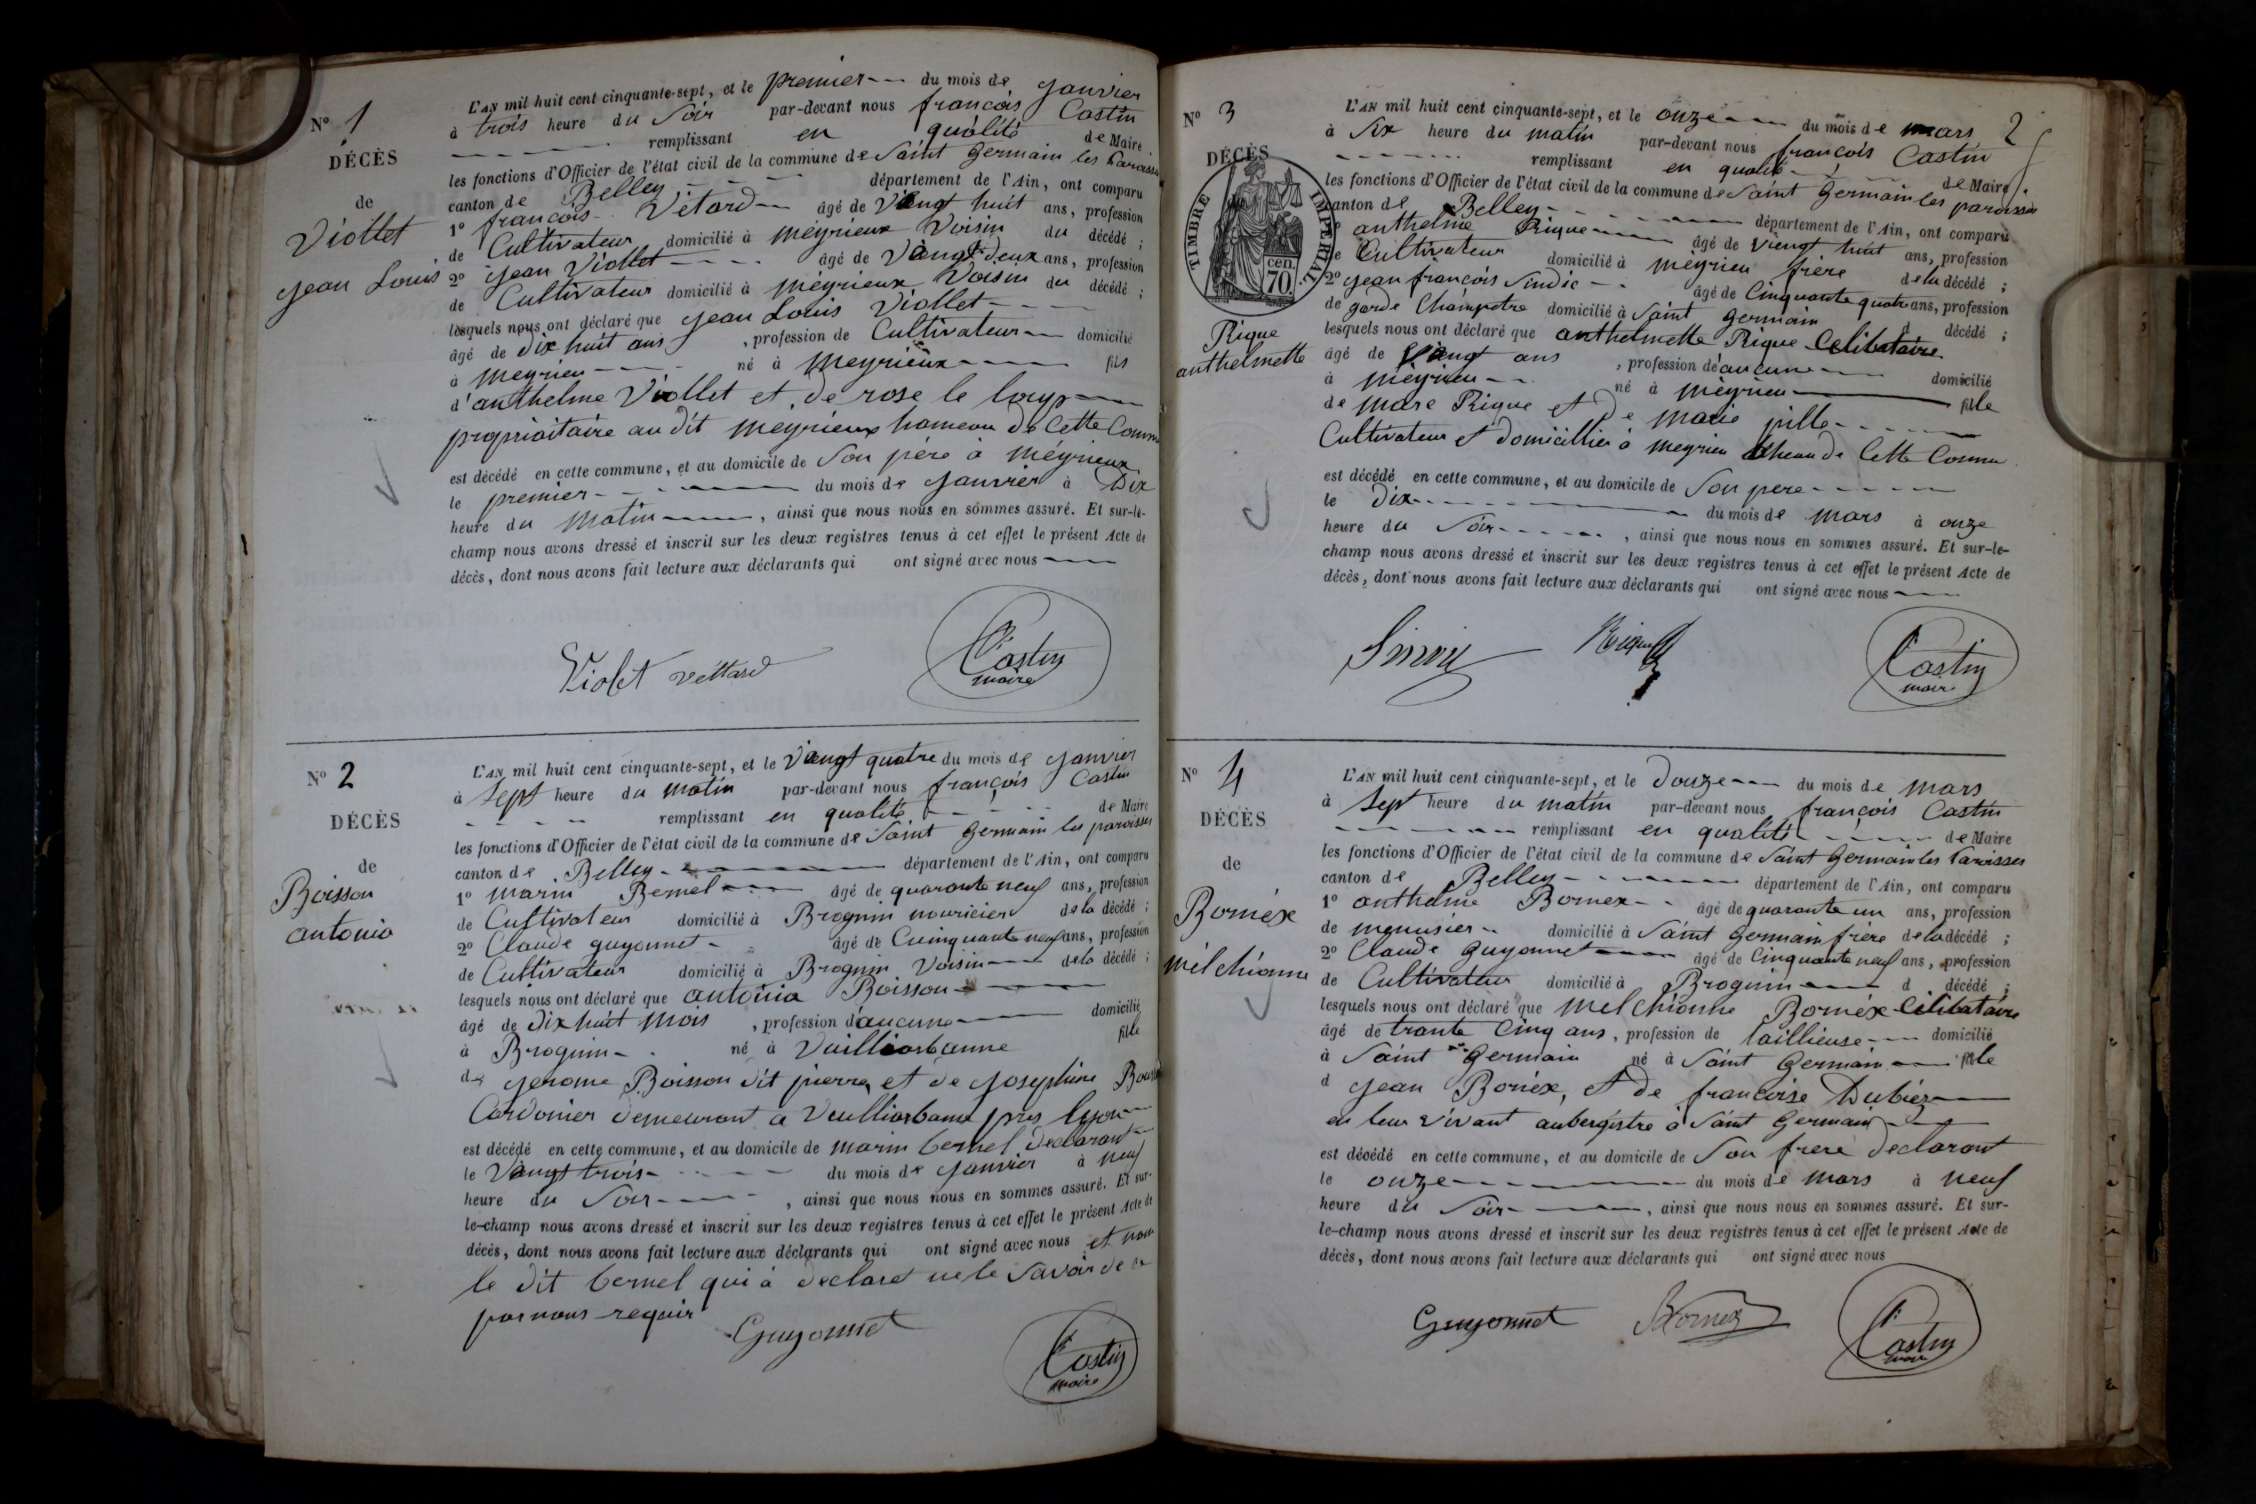 N° 1
DÉCÈS
de
Viollet
Jean Louis
L'AN mil huit cent cinquante-sept, et le premier du mois de Janvier
à trois heure du Soir par-devant nous françois Castin
remplissant en qualité de Maire
les fonctions d'Officier de l'état civil de la commune de Saint Germain les Paroisses
canton de Belley département de l'Ain, ont comparu
1° françois Vétard âgé de Vingt huit ans, profession
de Cultivateur domicilié à meyrieux Voisin du décédé ;
2° Jean Viollet âgé de Vingt deux ans, profession
de Cultivateur domicilié à meyrieux Voisin du décédé ;
lesquels nous ont déclaré que Jean Louis Viollet
âgé de dix huit ans , profession de Cultivateur domicilié
à meyrieu né à meyrieux fils
d'anthelme Viollet et de rose le loup
proprioitaire au dit meyrieux hameau de Cette Comm
est décédé en cette commune, et au domicile de Son père à meyrieux
le premier du mois de Janvier à Dix
heure du matin , ainsi que nous nous en sommes assuré. Et sur-le-
champ nous avons dressé et inscrit sur les deux registres tenus à cet effet le présent Acte de
décès, dont nous avons fait lecture aux déclarants qui ont signé avec nous
Violet vettard Castin
maire
N° 2
DÉCÈS
de
Boisson
antonia
L'AN mil huit cent cinquante-sept, et le Vingt quatre du mois de Janvier
à Sept heure du matin par-devant nous françois Castin
remplissant en qualité de Maire
les fonctions d'Officier de l'état civil de la commune de Saint Germain les paroisses
canton de Belley département de l'Ain, ont comparu
1° marin Bernel âgé de quarante neuf ans, profession
de Cultivateur domicilié à Brognin nouricier de la décédé ;
2° Claude guyonnet âgé de Cuinquante neuf ans, profession
de Cultivateur domicilié à Brognin Voisin de la décédé ;
lesquels nous ont déclaré que antonia Boisson
âgé de dix huit mois , profession d'aucune domicilié
à Brognin né à Vuilliarbanne fille
de Jerome Boisson dit pierre et de Josephine
Cordonier demeurant a Veulliarbanne pres lyon
est décédé en cette commune, et au domicile de marin bernel declarant
le Vingt trois du mois de Janvier à neuf
heure du Soir , ainsi que nous nous en sommes assuré. Et sur-
le-champ nous avons dressé et inscrit sur les deux registres tenus à cet effet le présent Acte de
décès, dont nous avons fait lecture aux déclarants qui ont signé avec nous et non
le dit bernel qui à declaré ne le Savoir de ce
par nous requir
Guyonnet Castin
maire
N° 3
2
DÉCÈS
TIMBRE IMPÉRIAL
70 cen.
Rique
anthelmette
L'AN mil huit cent cinquante-sept, et le onze du mois de mars
à Six heure du matin par-devant nous françois Castin
remplissant en qualité de Maire
les fonctions d'Officier de l'état civil de la commune de Saint Germain les paroisses
canton de Belley département de l'Ain, ont comparu
1° anthelme Rique âgé de Vingt huit ans, profession
de Cultivateur domicilié à meyrieu frère de la décédé ;
2° Jean françois Sindic âgé de Cinquante quatre ans, profession
de garde Champetre domicilié à Saint Germain d décédé ;
lesquels nous ont déclaré que anthelmette Rique Celibataire
âgé de Vingt ans , profession d'aucune domicilié
à meyrieu né à meyrieu fille
de marc Rique et de marie pille
Cultivateur et domicillier à meyrieu de Cette Commu
est décédé en cette commune, et au domicile de Son pere
le dix du mois de mars à onze
heure du Soir , ainsi que nous nous en sommes assuré. Et sur-le-
champ nous avons dressé et inscrit sur les deux registres tenus à cet effet le présent Acte de
décès, dont nous avons fait lecture aux déclarants qui ont signé avec nous
Castin
maire
N° 4
DÉCÈS
de
Bornéx
mélchionne
L'AN mil huit cent cinquante-sept, et le Douze du mois de mars
à Sept heure du matin par-devant nous françois Castin
remplissant en qualité de Maire
les fonctions d'Officier de l'état civil de la commune de Saint Germain les Paroisses
canton de Belley département de l'Ain, ont comparu
1° anthelme Bornex âgé de quarante un ans, profession
de menuisier domicilié à Saint Germain frère de la décédé ;
2° Claude Guyonnet âgé de Cinquante neuf ans, profession
de Cultivateur domicilié à Brognin d décédé ;
lesquels nous ont déclaré que melchionne Bornéx Célibataire
âgé de trante Cinq ans, profession de taillieuse domicilié
à Saint Germain né à Saint Germain fille
d Jean Bornéx, et de françoise Dubiez
en leur vivant aubergistre à Saint Germain
est décédé en cette commune, et au domicile de Son frere declarant
le onze du mois de mars à neuf
heure du Soir , ainsi que nous nous en sommes assuré. Et sur-
le-champ nous avons dressé et inscrit sur les deux registres tenus à cet effet le présent Acte de
décès, dont nous avons fait lecture aux déclarants qui ont signé avec nous
Guyonnet Bornex Castin
maire